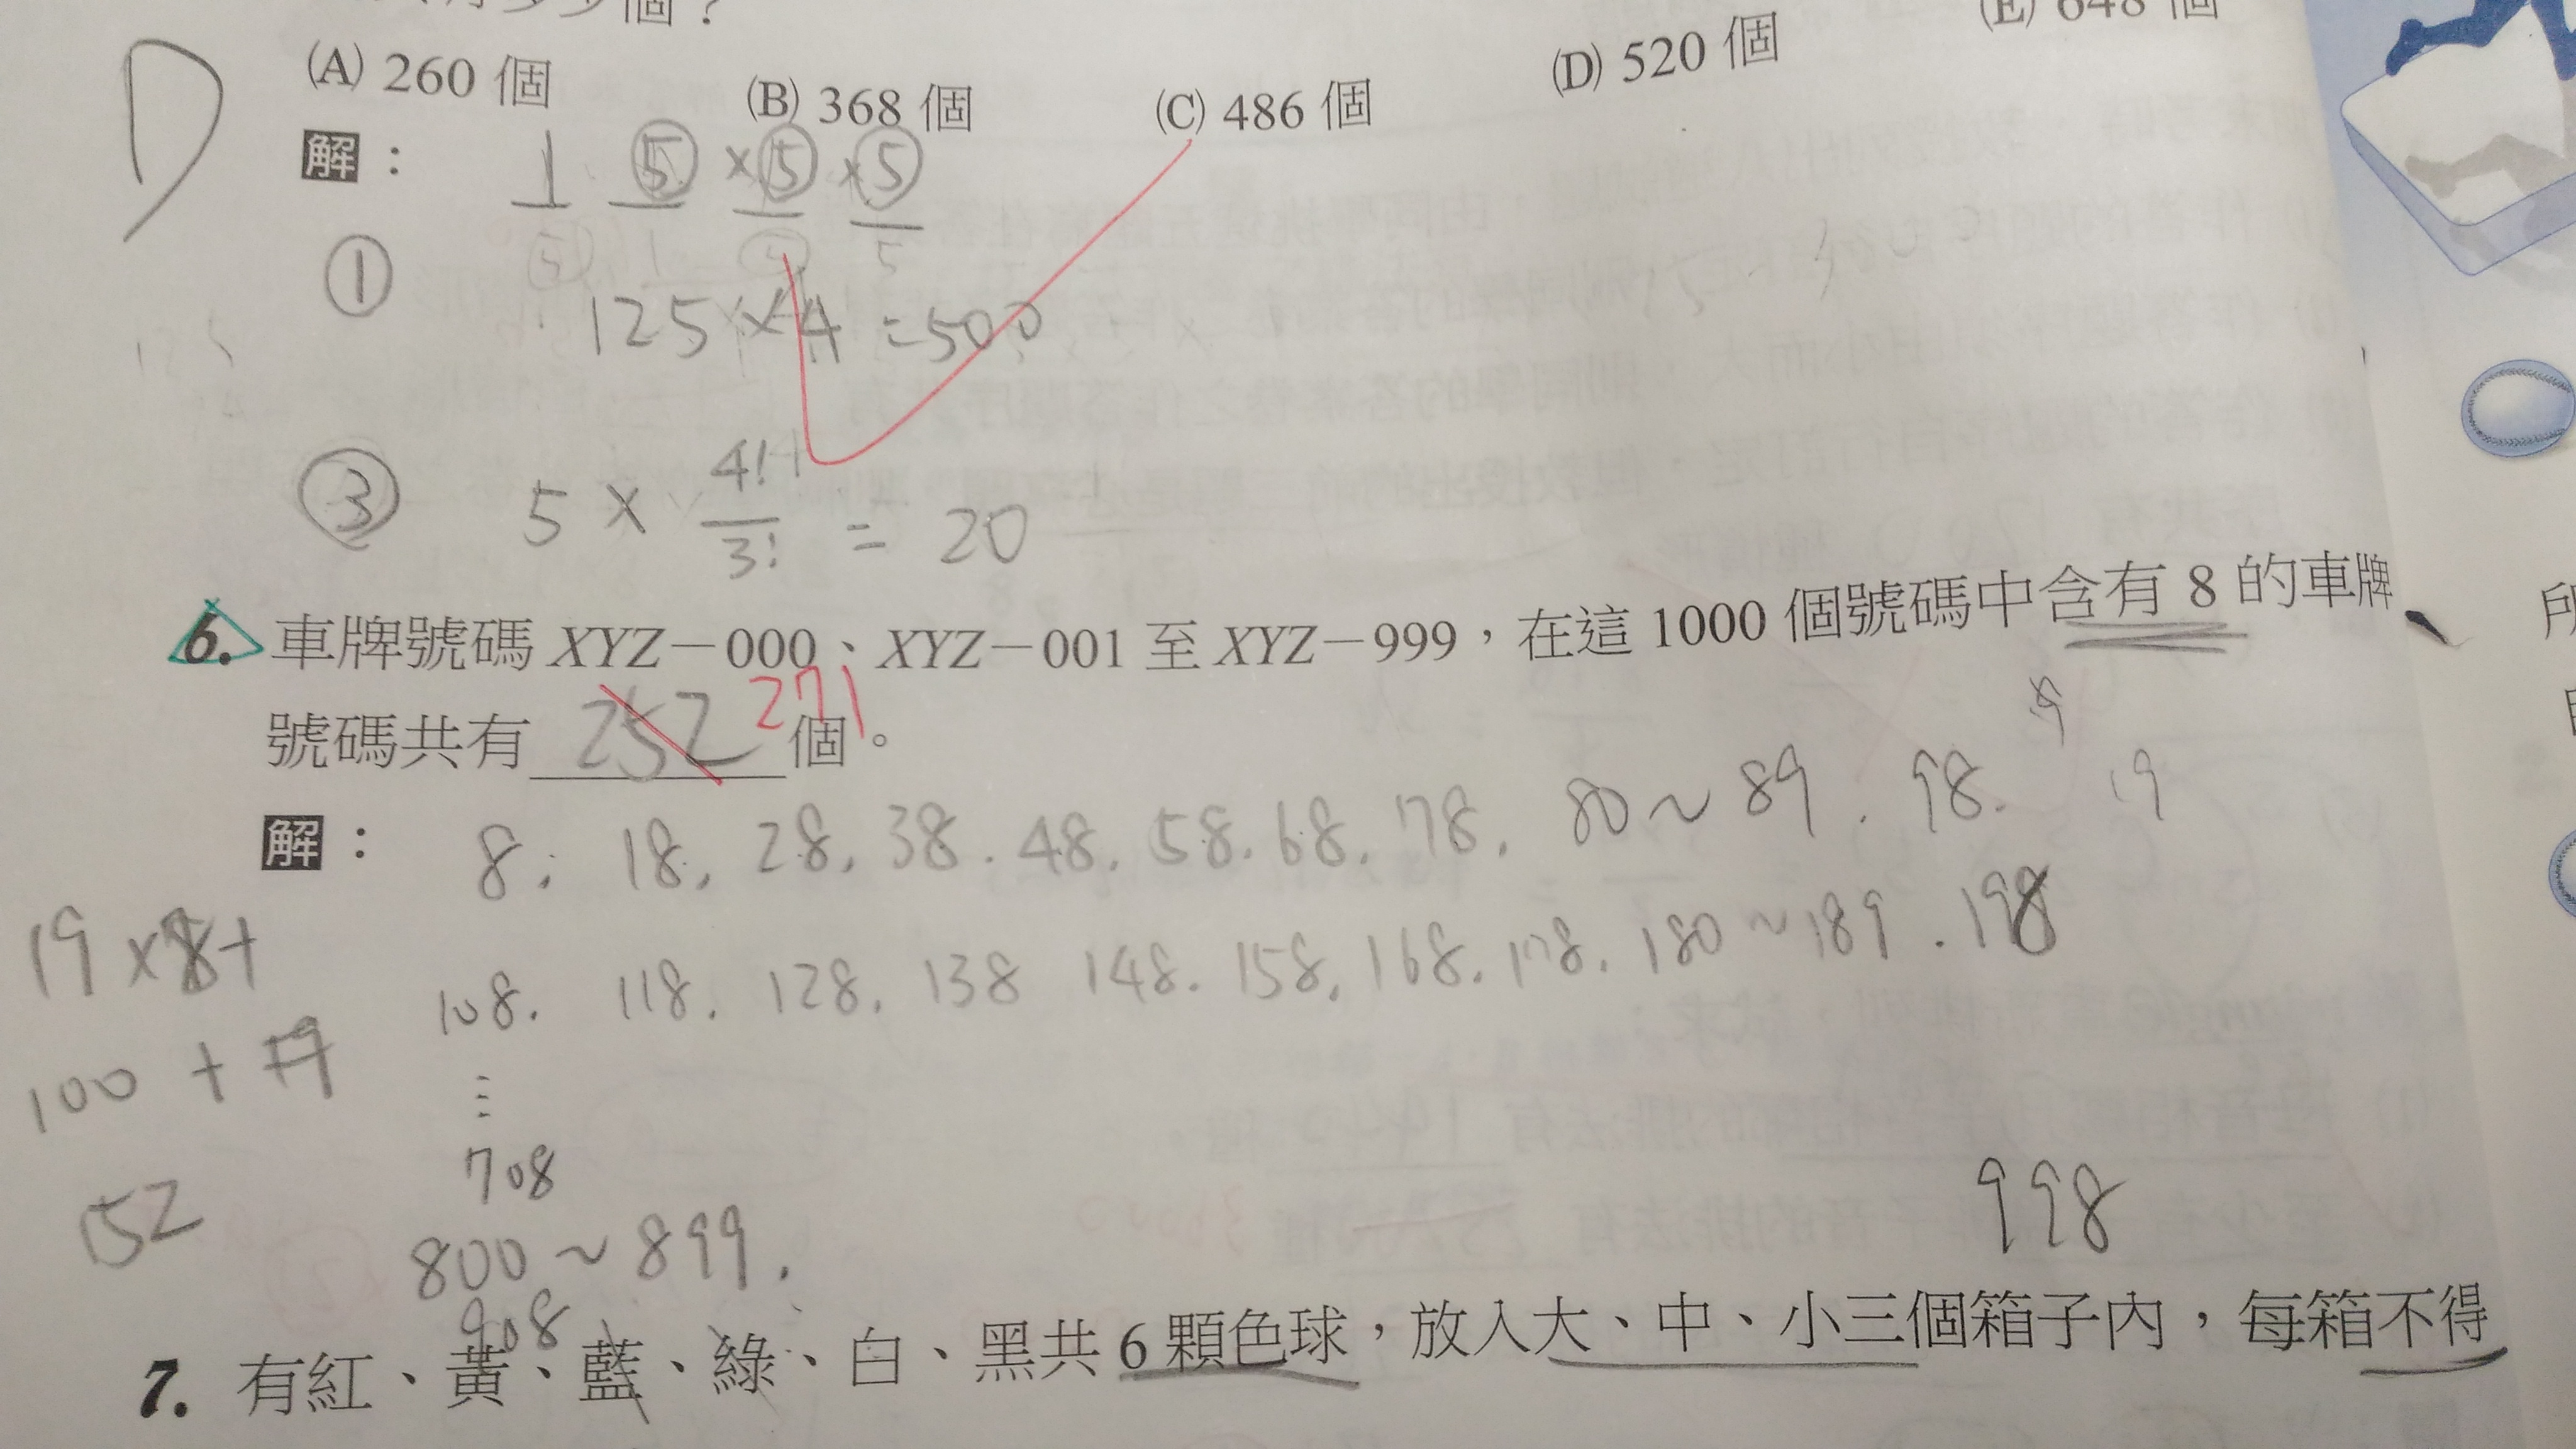 個？
(A) 260 個 (B) 368 個 (C) 486 個 (D) 520 個 (E) 648 個
D
解： 1 5 ×5 ×5
①
125×4 =500
③ 5 × 4!/3! = 20
6. 車牌號碼 XYZ－000、XYZ－001 至 XYZ－999，在這 1000 個號碼中含有 8 的車牌
號碼共有 252 271 個。
解： 8, 18, 28, 38. 48, 58. 68, 78, 80～89. 98. 19
108. 118. 128, 138 148. 158, 168, 178. 180～189. 198
19×8+
100 +
152
708
800～899.
998
908
7. 有紅、黃、藍、綠、白、黑共 6 顆色球，放入大、中、小三個箱子內，每箱不得